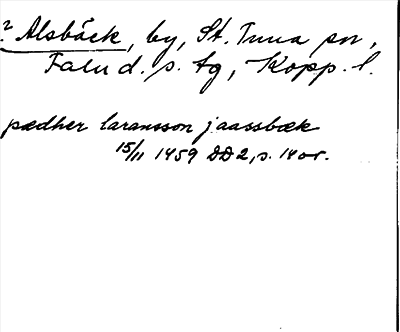 ? Alsbäck, by, St. Tuna sn,
Falu d. s. tg, Kopp. l.
pædher laransson j aassbæk
15/11 1459 DD 2, s. 14 or.